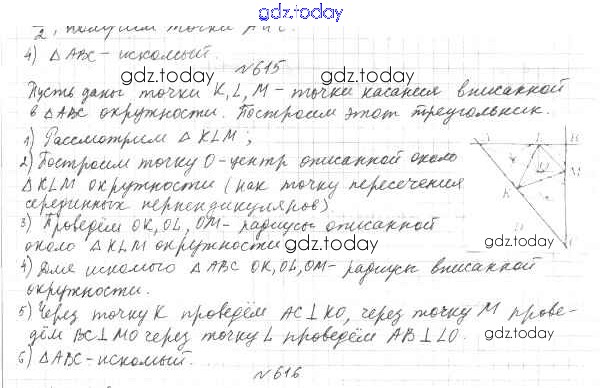 gdz.today
2, получим точки A и C.
4) △ABC - искомый.
gdz.today
№615
Пусть даны точки K, L, M - точки касания вписанной
в △ABC окружности. Построим этот треугольник.
gdz.today
1) Рассмотрим △KLM;
2) Построим точку O - центр описанной около
△KLM окружности (как точку пересечения
серединных перпендикуляров)
3) Проведём OK, OL, OM - радиусы описанной
около △KLM окружности
gdz.today
4) Для искомого △ABC OK, OL, OM - радиусы вписанной
окружности.
5) Через точку K проведём AC⊥KO, через точку M прове-
дём BC⊥MO через точку L проведём AB⊥LO.
gdz.today
6) △ABC - искомый.
№616
L
B
K
M
gdz.today